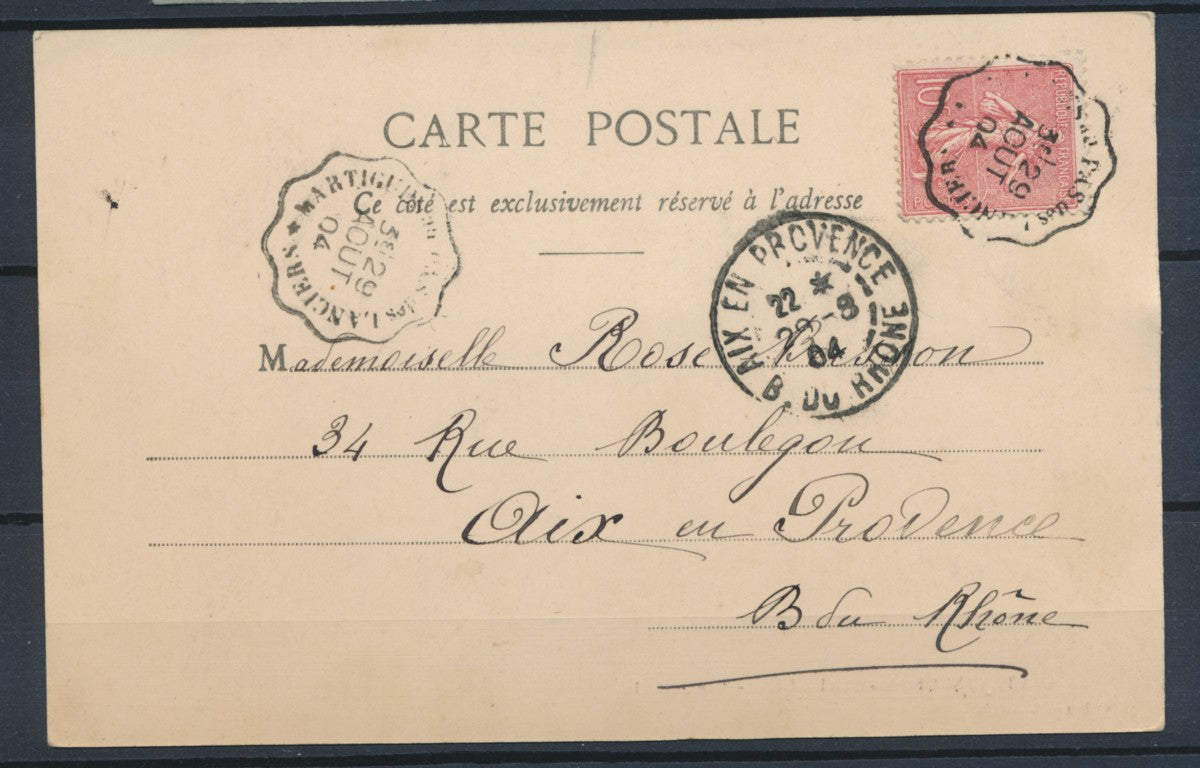 CARTE POSTALE
Ce côté est exclusivement réservé à l'adresse
10
REPUBLIQUE FRANCAISE
3E 29
AOUT
04
MARTIGUES au PAS des LANCIERS
3E 29
AOUT
04
AIX EN PROVENCE
22 *
29 - 8
04
B. DU RHONE
Mademoiselle Rose
34 Rue Boulegon
Aix en Provence
B du Rhône